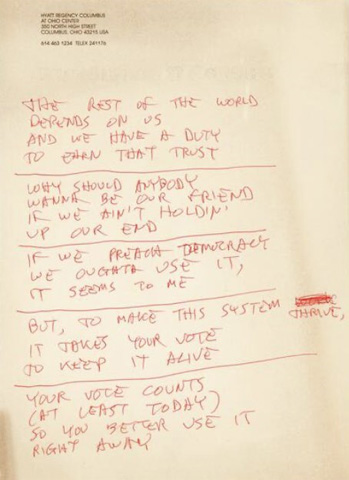 HYATT REGENCY COLUMBUS
AT OHIO CENTER
350 NORTH HIGH STREET
COLUMBUS, OHIO 43215 USA
614 463 1234 TELEX 241176
THE REST OF THE WORLD
DEPENDS ON US
AND WE HAVE A DUTY
TO EARN THAT TRUST
WHY SHOULD ANYBODY
WANNA BE OUR FRIEND
IF WE AIN'T HOLDIN'
UP OUR END
IF WE PREACH DEMOCRACY
WE OUGHTA USE IT,
IT SEEMS TO ME
BUT, TO MAKE THIS SYSTEM THRIVE,
IT TAKES YOUR VOTE
TO KEEP IT ALIVE
YOUR VOTE COUNTS
(AT LEAST TODAY)
SO YOU BETTER USE IT
RIGHT AWAY